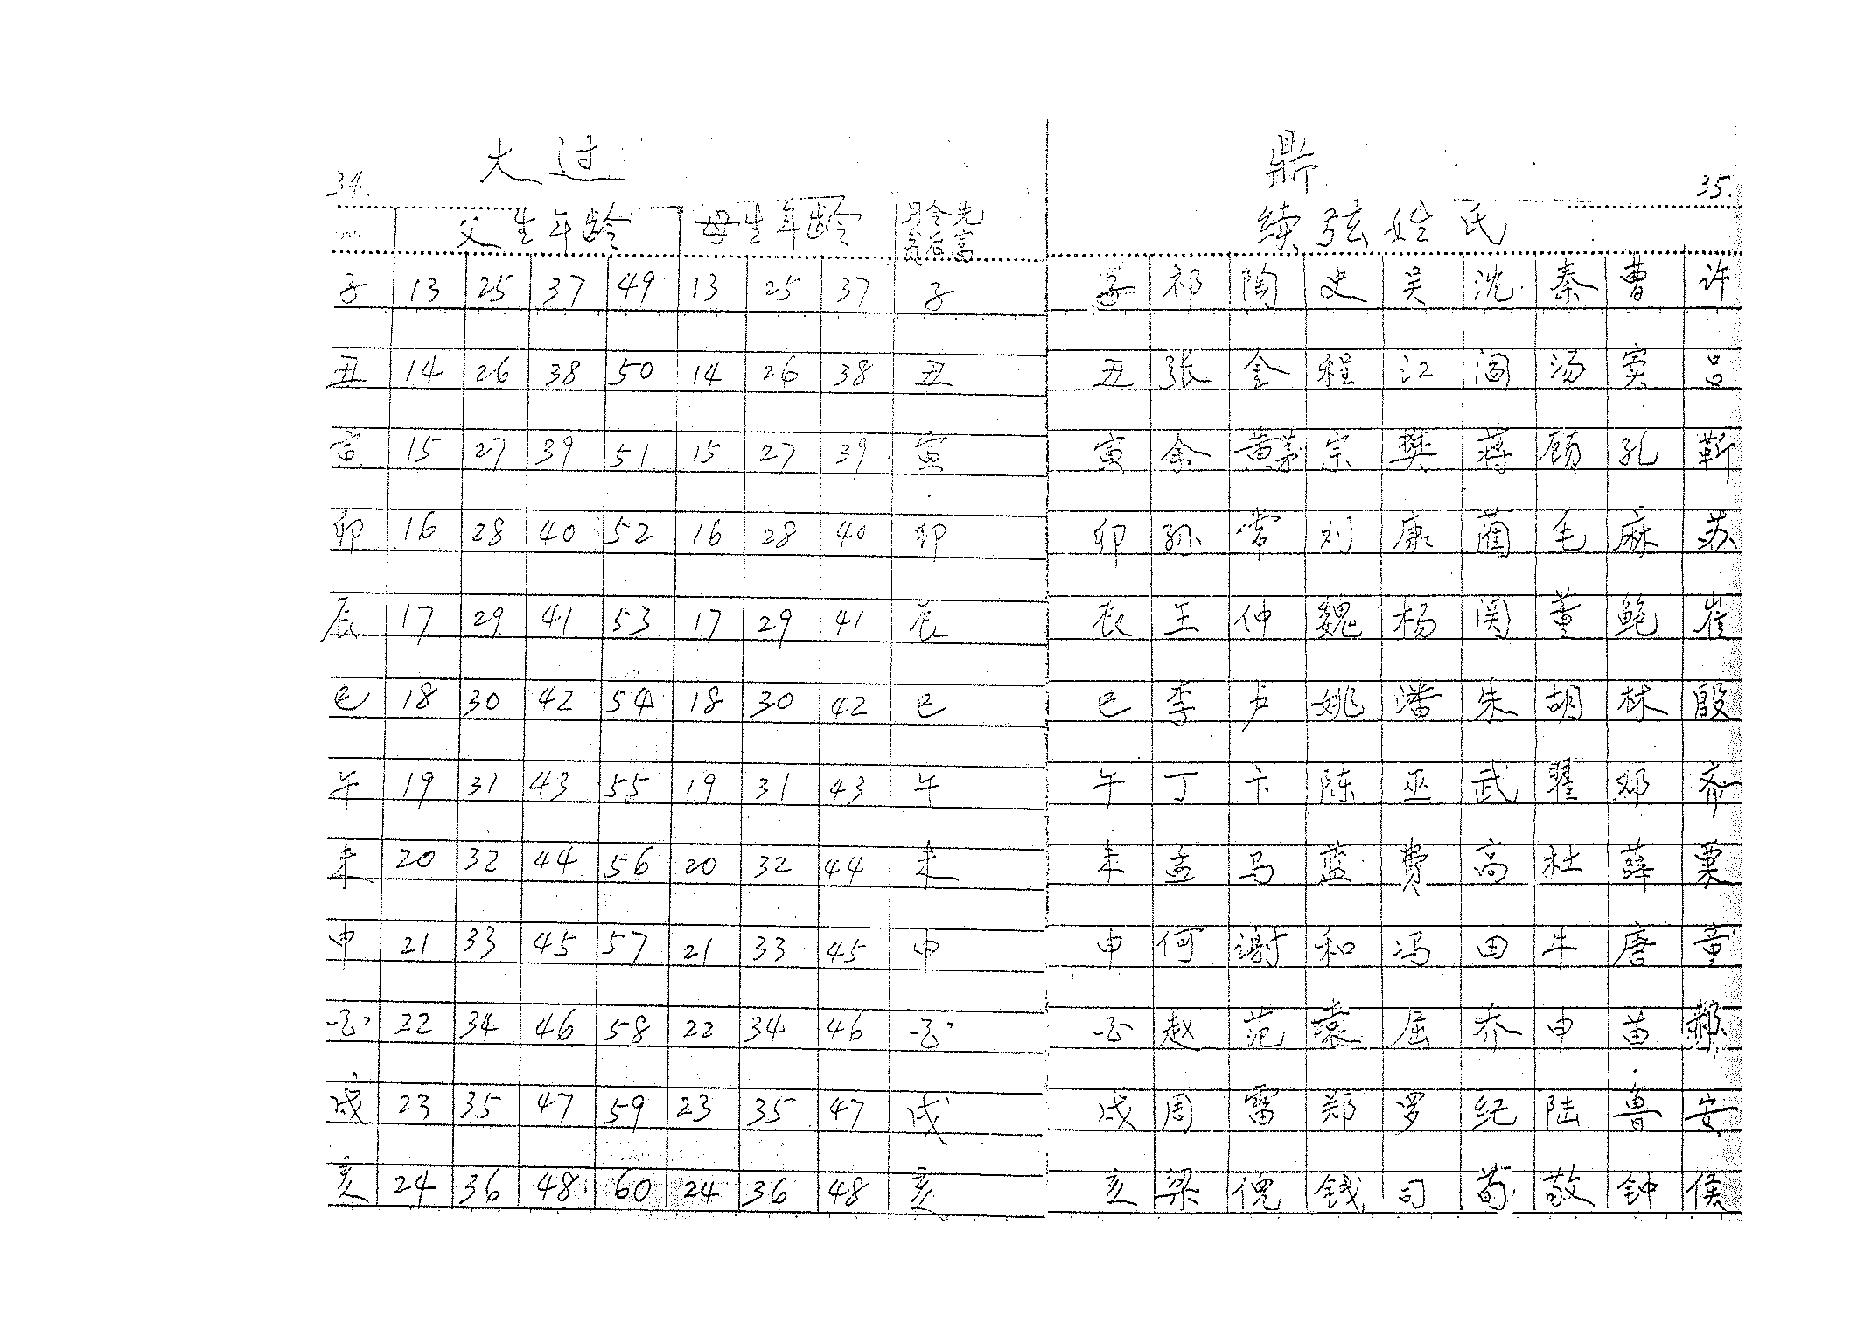 大过
34.
父生年龄 母生年龄
子 13 25 37 49 13 25 37 子
丑 14 26 38 50 14 26 38 丑
寅 15 27 39 51 15 27 39 寅
卯 16 28 40 52 16 28 40 卯
辰 17 29 41 53 17 29 41 辰
巳 18 30 42 54 18 30 42 巳
午 19 31 43 55 19 31 43 午
未 20 32 44 56 20 32 44 未
申 21 33 45 57 21 33 45 申
酉 22 34 46 58 22 34 46 酉
戌 23 35 47 59 23 35 47 戌
亥 24 36 48 60 24 36 48 亥
鼎
35.
续弦姓氏
子 祁 陶 史 吴 沈 秦 曹 许
丑 张 金 程 江 阎 汤 窦 吕
寅 余 黄 宗 樊 蒋 顾 孔 靳
卯 孙 常 刘 康 蔺 毛 麻 苏
辰 王 仲 魏 杨 关 董 鲍 崔
巳 李 卢 姚 潘 朱 胡 林 殷
午 丁 卞 陈 巫 武 翟 邓 齐
未 孟 马 蓝 费 高 杜 薛 栗
申 何 谢 和 冯 田 牛 唐 童
酉 赵 范 袁 屈 乔 申 苗 郝
戌 周 雷 郑 罗 纪 陆 鲁 安
亥 梁 倪 钱 司 荀 敬 钟 侯